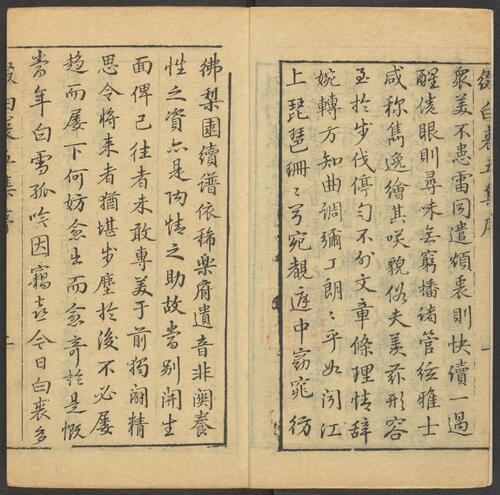 綴白裘五集序
眾美不患雷同遣煩衷則快讀一過
醒倦眼則尋味無窮播諸管絃雅士
咸稱雋逸繪其咲貌俗夫羡茲形容
至於步伐停勻不外文章條理情辭
婉轉方知曲調彌工朗〻乎如聞江
上琵琶珊〻兮宛覩庭中窈窕彷
彿梨園續譜依稀樂府遺音非關養
性之資亦是陶情之助故嘗別開生
面俾已往者未敢專美于前獨闢精
思令將來者猶堪步塵於後不必屢
趨而屢下何妨愈出而愈奇於是慨
當年白雪孤吟因竊喜今日白裘多
綴白裘五集序